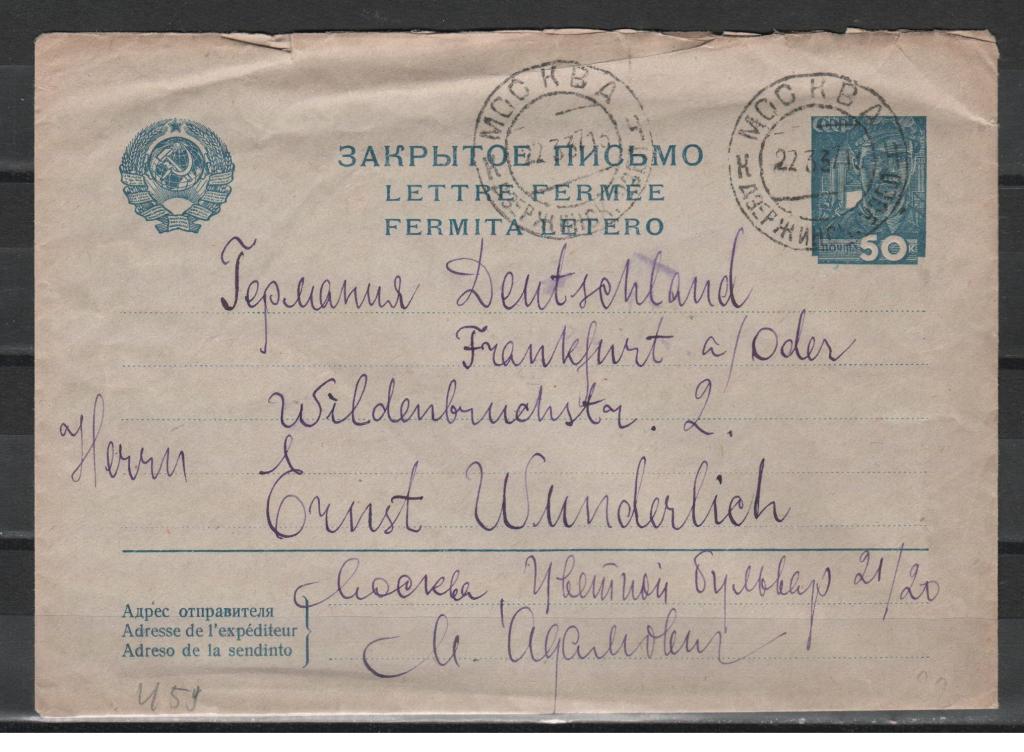 МОСКВА
22 3 37
ДЗЕРЖИНСК
МОСКВА
22 3 37
ДЗЕРЖИНСК
ПОЧТА 50 К
ЗАКРЫТОЕ ПИСЬМО
LETTRE FERMÉE
FERMITA LETERO
Германия Deutschland
Frankfurt a/Oder
Wildenbruchstr. 2.
Herrn Ernst Wunderlich
Москва, Цветной бульвар 21/20
Адрес отправителя
Adresse de l'expéditeur
Adreso de la sendinto
И. Адамович